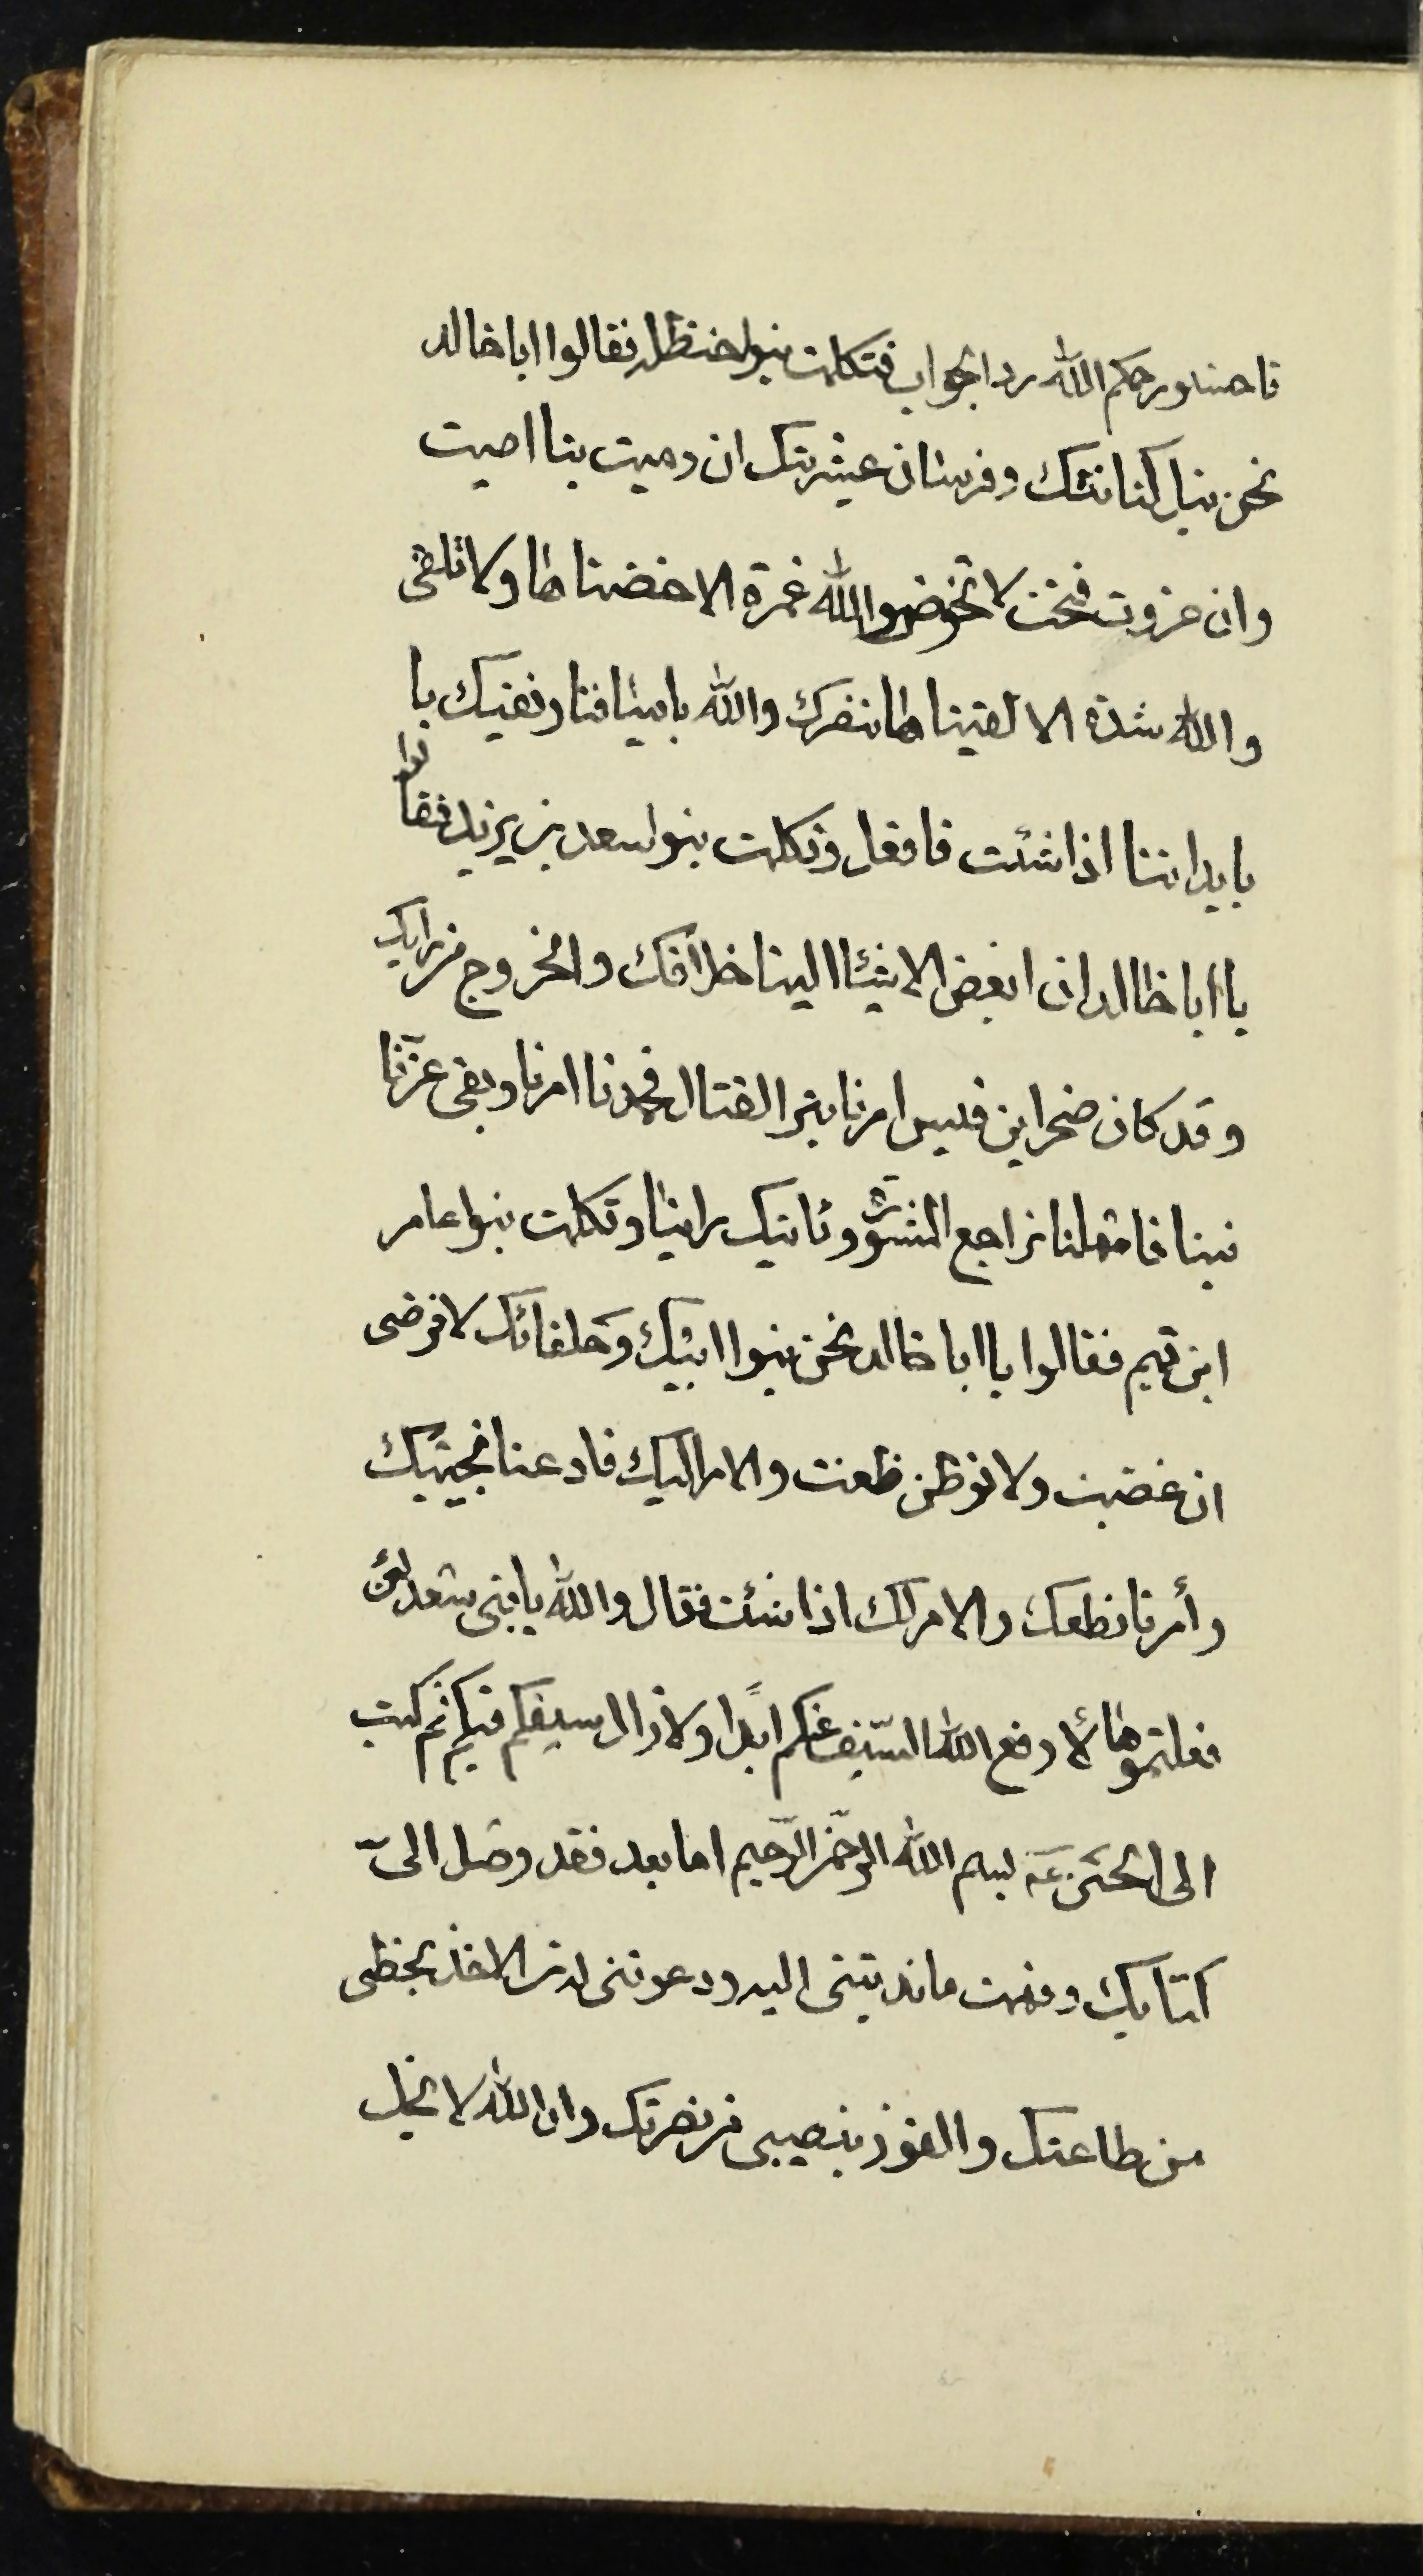 فاحسنوا رحمكم الله رد الجواب فتكلمت بنوا حنظله فقالوا ابا خالد
نحن نبل كنانتك وفرسان عشيرتك ان رميت بنا اصبت
وان غزوت فتحت لا تخوض والله غمرة الا خضناها ولا تلقى
والله شدة الا لقيناها ننصرك والله باسيافنا ونقيك با
بابداننا اذا شئت فافعل وتكلمت بنوا سعد بن يزيد فقالوا
يا ابا خالد ان ابغض الاشيئا الينا خلافك والخروج من رايك
وقد كان صخر ابن قيس امرنا بترا القتال فحمدنا امرنا وبقى عزّنا
فينا فامهلنا نراجع المشورة وناتيك براينا وتكلمت بنوا عامر
ابن تميم فقالوا يا ابا خالد نحن بنوا ابيك وحلفائك لا نرضى
ان غضبت ولا نوطن ظعنت والامر اليك فادعنا نجيبك
وأمرنا نطعك والامر لك اذا شئت فقال والله يا بنى سعد لئن
فعلتموها لا رفع الله السّيف عنكم ابدًا ولا زال سيفكم فيكم ثم كتب
الى الحسَين عَه بسم الله الرّحمن الرّحيم اما بعد فقد وصَل الىّ
كتابك وفهمت ما ندبتنى اليه ودعوتنى له من الاخذ بحظى
من طاعتك والفوز بنصيبى من نصرتك وان الله لا يخل